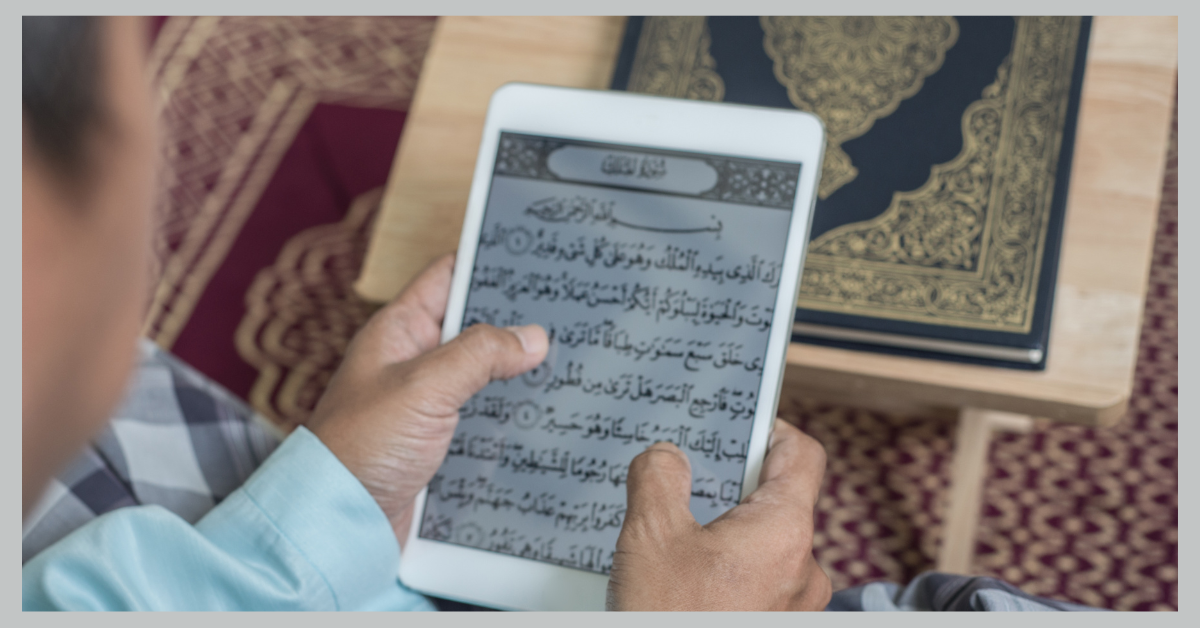 سُورَةُ الْمُلْكِ
بِسْمِ ٱللَّهِ ٱلرَّحْمَٰنِ ٱلرَّحِيمِ
ٱلَّذِى بِيَدِهِ ٱلْمُلْكُ وَهُوَ عَلَىٰ كُلِّ شَىْءٍ قَدِيرٌ ١
وَٱلْحَيَوٰةَ لِيَبْلُوَكُمْ أَيُّكُمْ أَحْسَنُ عَمَلًا وَهُوَ ٱلْعَزِيزُ ٱلْغَفُورُ
خَلَقَ سَبْعَ سَمَٰوَٰتٍ طِبَاقًا مَّا تَرَىٰ
فَٱرْجِعِ ٱلْبَصَرَ هَلْ تَرَىٰ مِن فُطُورٍ
إِلَيْكَ ٱلْبَصَرُ خَاسِئًا وَهُوَ حَسِيرٌ ٤ وَلَقَدْ
رُجُومًا لِّلشَّيَٰطِينِ وَأَعْتَدْنَا لَهُمْ
كَفَرُوا۟ بِرَبِّهِمْ عَذَابُ جَهَنَّمَ وَبِئْسَ
لَهَا شَهِيقًا وَهِىَ تَفُورُ